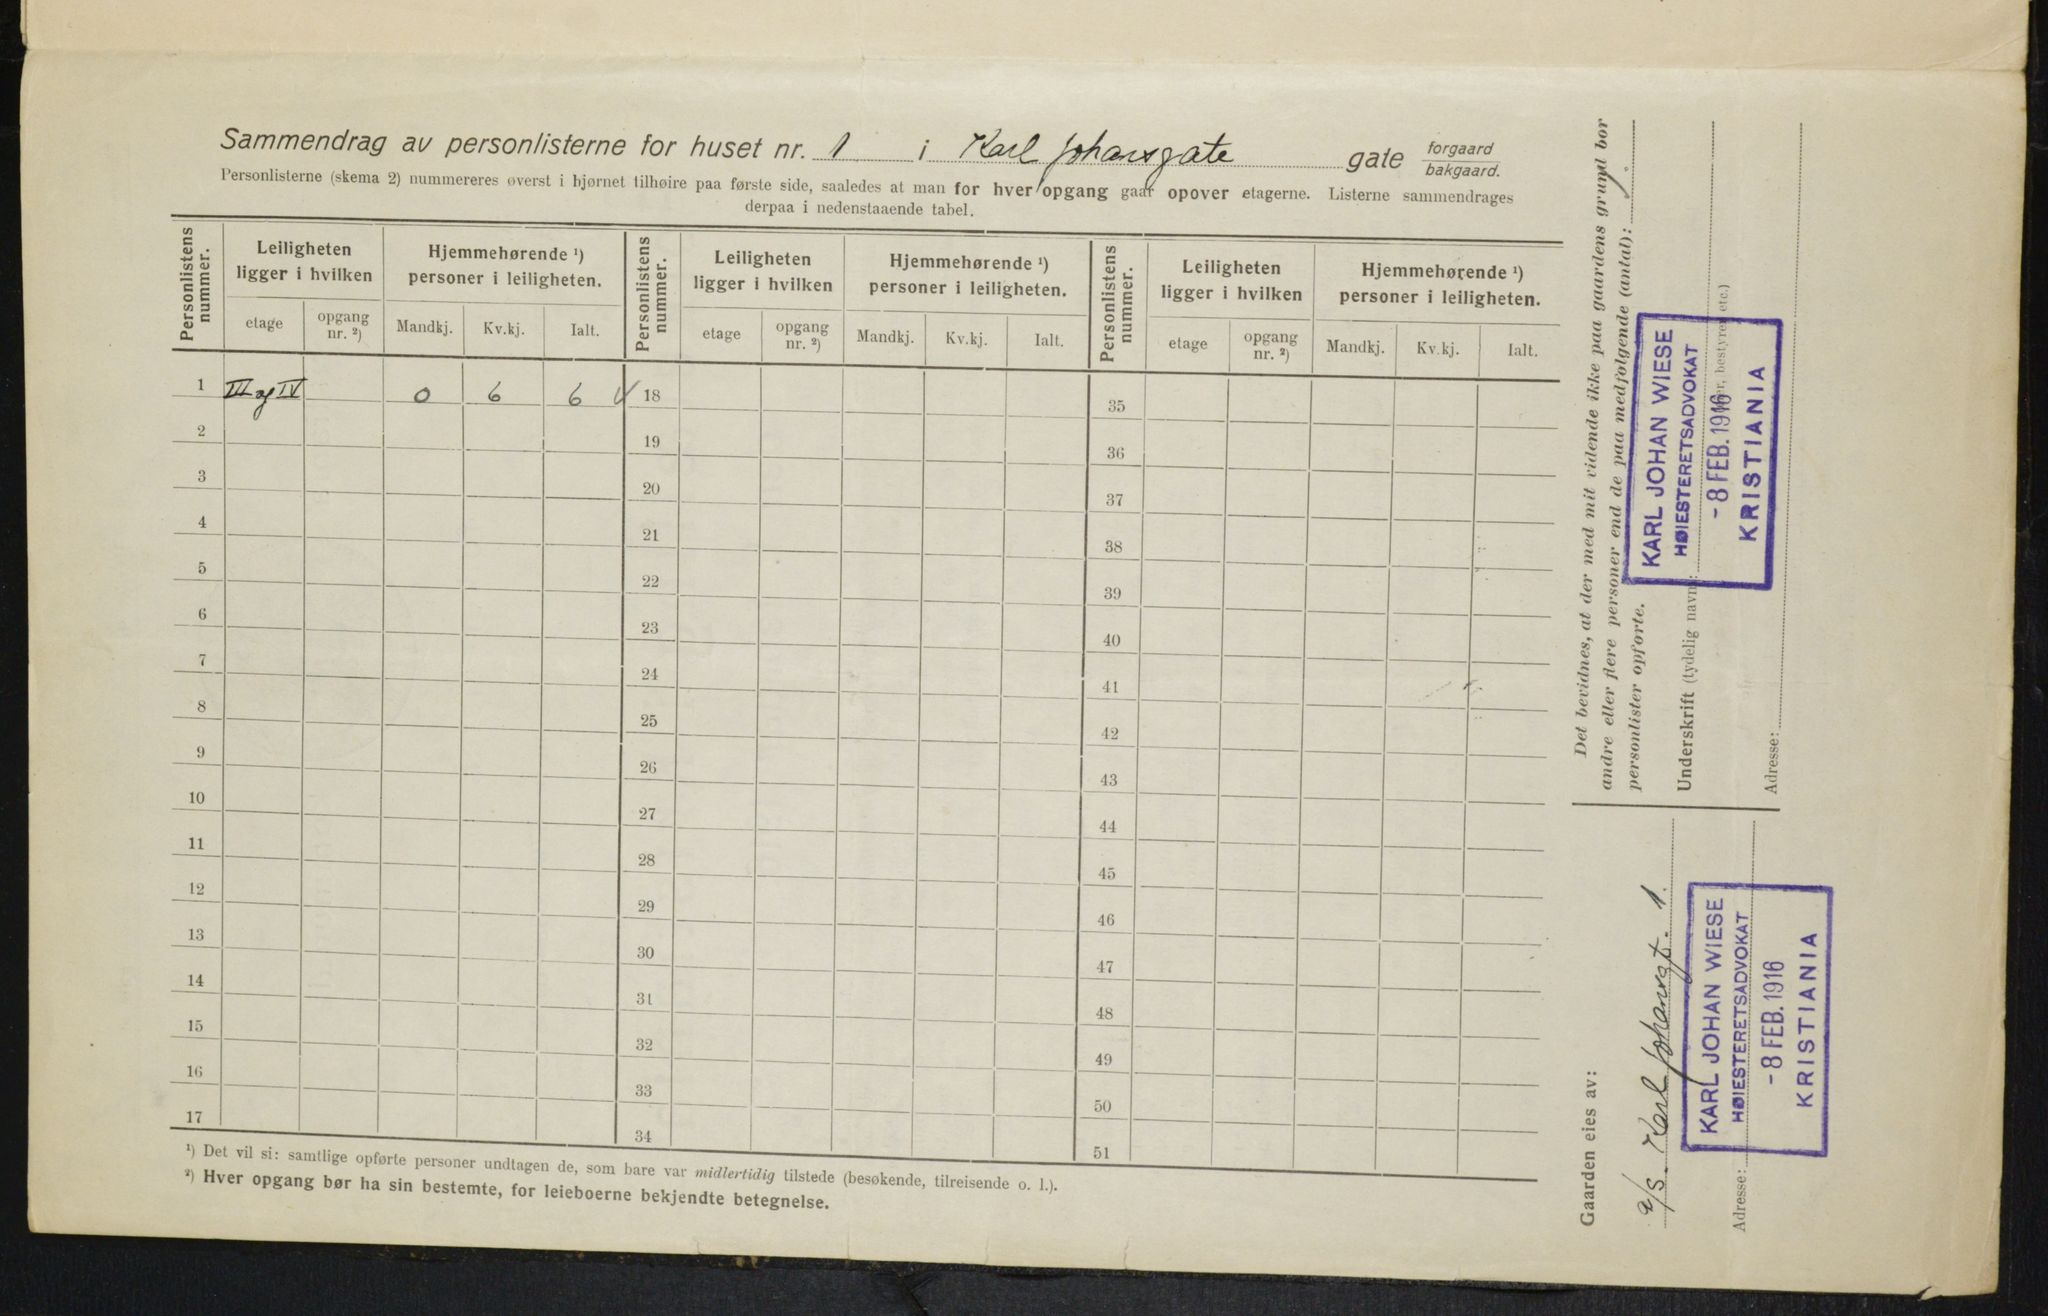 Sammendrag av personlisterne for huset nr. 1 i Karl Johansgate gate forgaard bakgaard.
Personlisterne (skema 2) nummereres øverst i hjørnet tilhøire paa første side, saaledes at man for hver opgang gaar opover etagerne. Listerne sammendrages
derpaa i nedenstaaende tabel.
Personlistens nummer. Leiligheten ligger i hvilken Hjemmehørende ¹) personer i leiligheten. Personlistens nummer. Leiligheten ligger i hvilken Hjemmehørende ¹) personer i leiligheten. Personlistens nummer. Leiligheten ligger i hvilken Hjemmehørende ¹) personer i leiligheten.
etage opgang nr. ²) Mandkj. Kv.kj. Ialt. etage opgang nr. ²) Mandkj. Kv.kj. Ialt. etage opgang nr. ²) Mandkj. Kv.kj. Ialt.
1 III og IV 0 6 6 18 35
2 19 36
3 20 37
4 21 38
5 22 39
6 23 40
7 24 41
8 25 42
9 26 43
10 27 44
11 28 45
12 29 46
13 30 47
14 31 48
15 32 49
16 33 50
17 34 51
¹) Det vil si: samtlige opførte personer undtagen de, som bare var midlertidig tilstede (besøkende, tilreisende o. l.).
²) Hver opgang bør ha sin bestemte, for leieboerne bekjendte betegnelse.
Det bevidnes, at der med mit vidende ikke paa gaardens grund bor
andre eller flere personer end de paa medfølgende (antal): 1.
personlister opførte.
Underskrift (tydelig navn):
bestyrer etc.)
Adresse:
KARL JOHAN WIESE
HØIESTERETSADVOKAT
- 8 FEB. 1916
KRISTIANIA
Gaarden eies av:
a/s. Karl Johansgt. 1.
Adresse:
KARL JOHAN WIESE
HØIESTERETSADVOKAT
- 8 FEB. 1916
KRISTIANIA